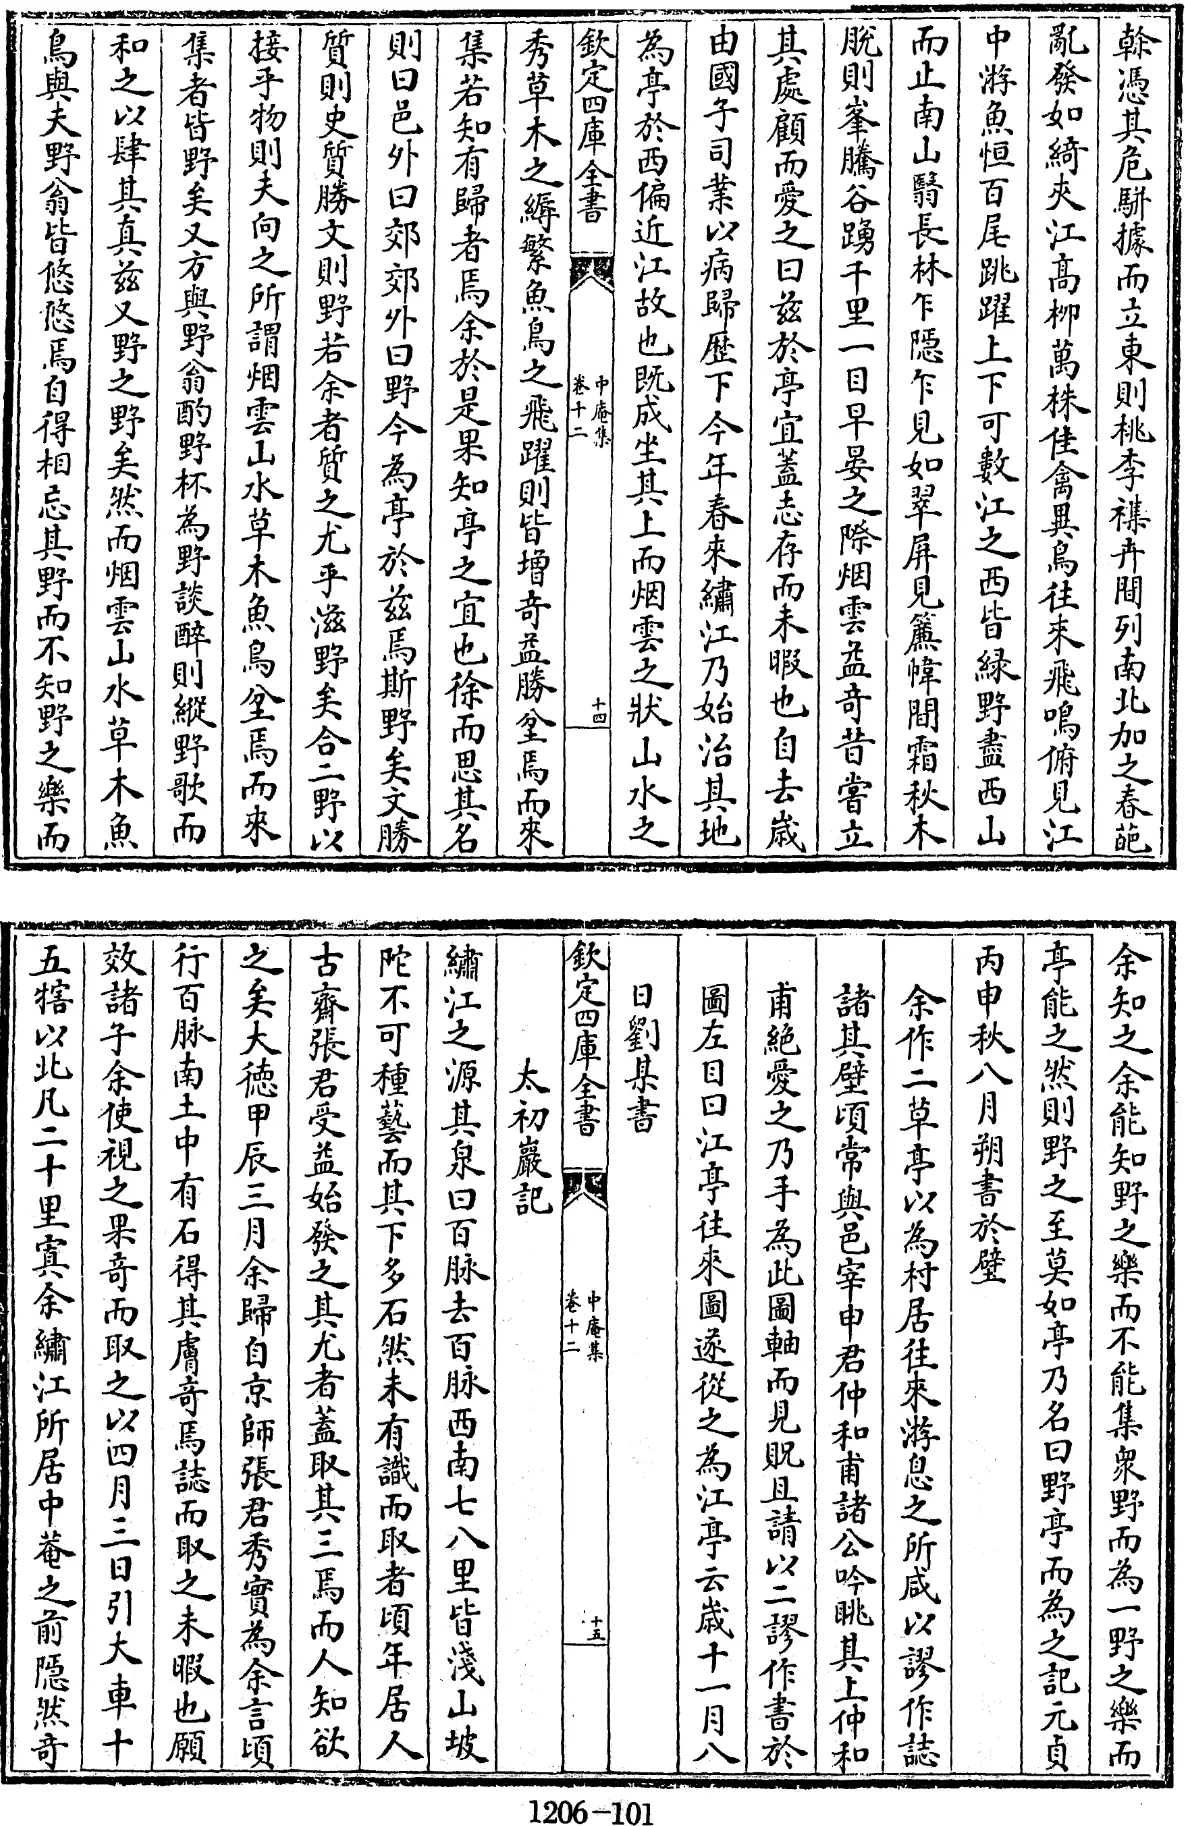 榦憑其危駢據而立東則桃李襍卉間列南北加之春葩
亂發如綺夾江高栁萬株佳禽異鳥往來飛鳴俯見江
中游魚恒百尾跳躍上下可數江之西皆緑野盡西山
而止南山翳長林乍隠乍見如翠屏見簾幃間霜秋木
脱則峯騰谷踴千里一目早晏之際烟雲益竒昔嘗立
其處顧而愛之曰兹於亭宜蓋志存而未暇也自去嵗
由國子司業以病歸歴下今年春來繡江乃始治其地
為亭於西偏近江故也既成坐其上而烟雲之狀山水之
欽定四庫全書
中庵集
卷十二
十四
秀草木之縟繁魚鳥之飛躍則皆增竒益勝坌焉而來
集若知有歸者焉余於是果知亭之宜也徐而思其名
則曰邑外曰郊郊外曰野今為亭於兹焉斯野矣文勝
質則史質勝文則野若余者質之尤乎滋野矣合二野以
接乎物則夫向之所謂烟雲山水草木魚鳥坌焉而來
集者皆野矣又方與野翁酌野杯為野談醉則縱野歌而
和之以肆其真兹又野之野矣然而烟雲山水草木魚
鳥與夫野翁皆悠悠焉自得相忘其野而不知野之樂而
余知之余能知野之樂而不能集衆野而為一野之樂而
亭能之然則野之至莫如亭乃名曰野亭而為之記元貞
丙申秋八月朔書於壁
余作二草亭以為村居往來游息之所咸以謬作誌
諸其壁頃常與邑宰申君仲和甫諸公吟眺其上仲和
甫絶愛之乃手為此圖軸而見貺且請以二謬作書於
圖左目曰江亭往來圖遂從之為江亭云嵗十一月八
日劉某書
欽定四庫全書
中庵集
卷十二
十五
太初巖記
繡江之源其泉曰百脉去百脉西南七八里皆淺山坡
陀不可種藝而其下多石然未有識而取者頃年居人
古齋張君受益始發之其尤者蓋取其三焉而人知欲
之矣大徳甲辰三月余歸自京師張君秀實為余言頃
行百脉南土中有石得其膚竒焉誌而取之未暇也願
效諸子余使視之果竒而取之以四月二日引大車十
五犗以北凡二十里寘余繡江所居中菴之前隠然竒
1206-101